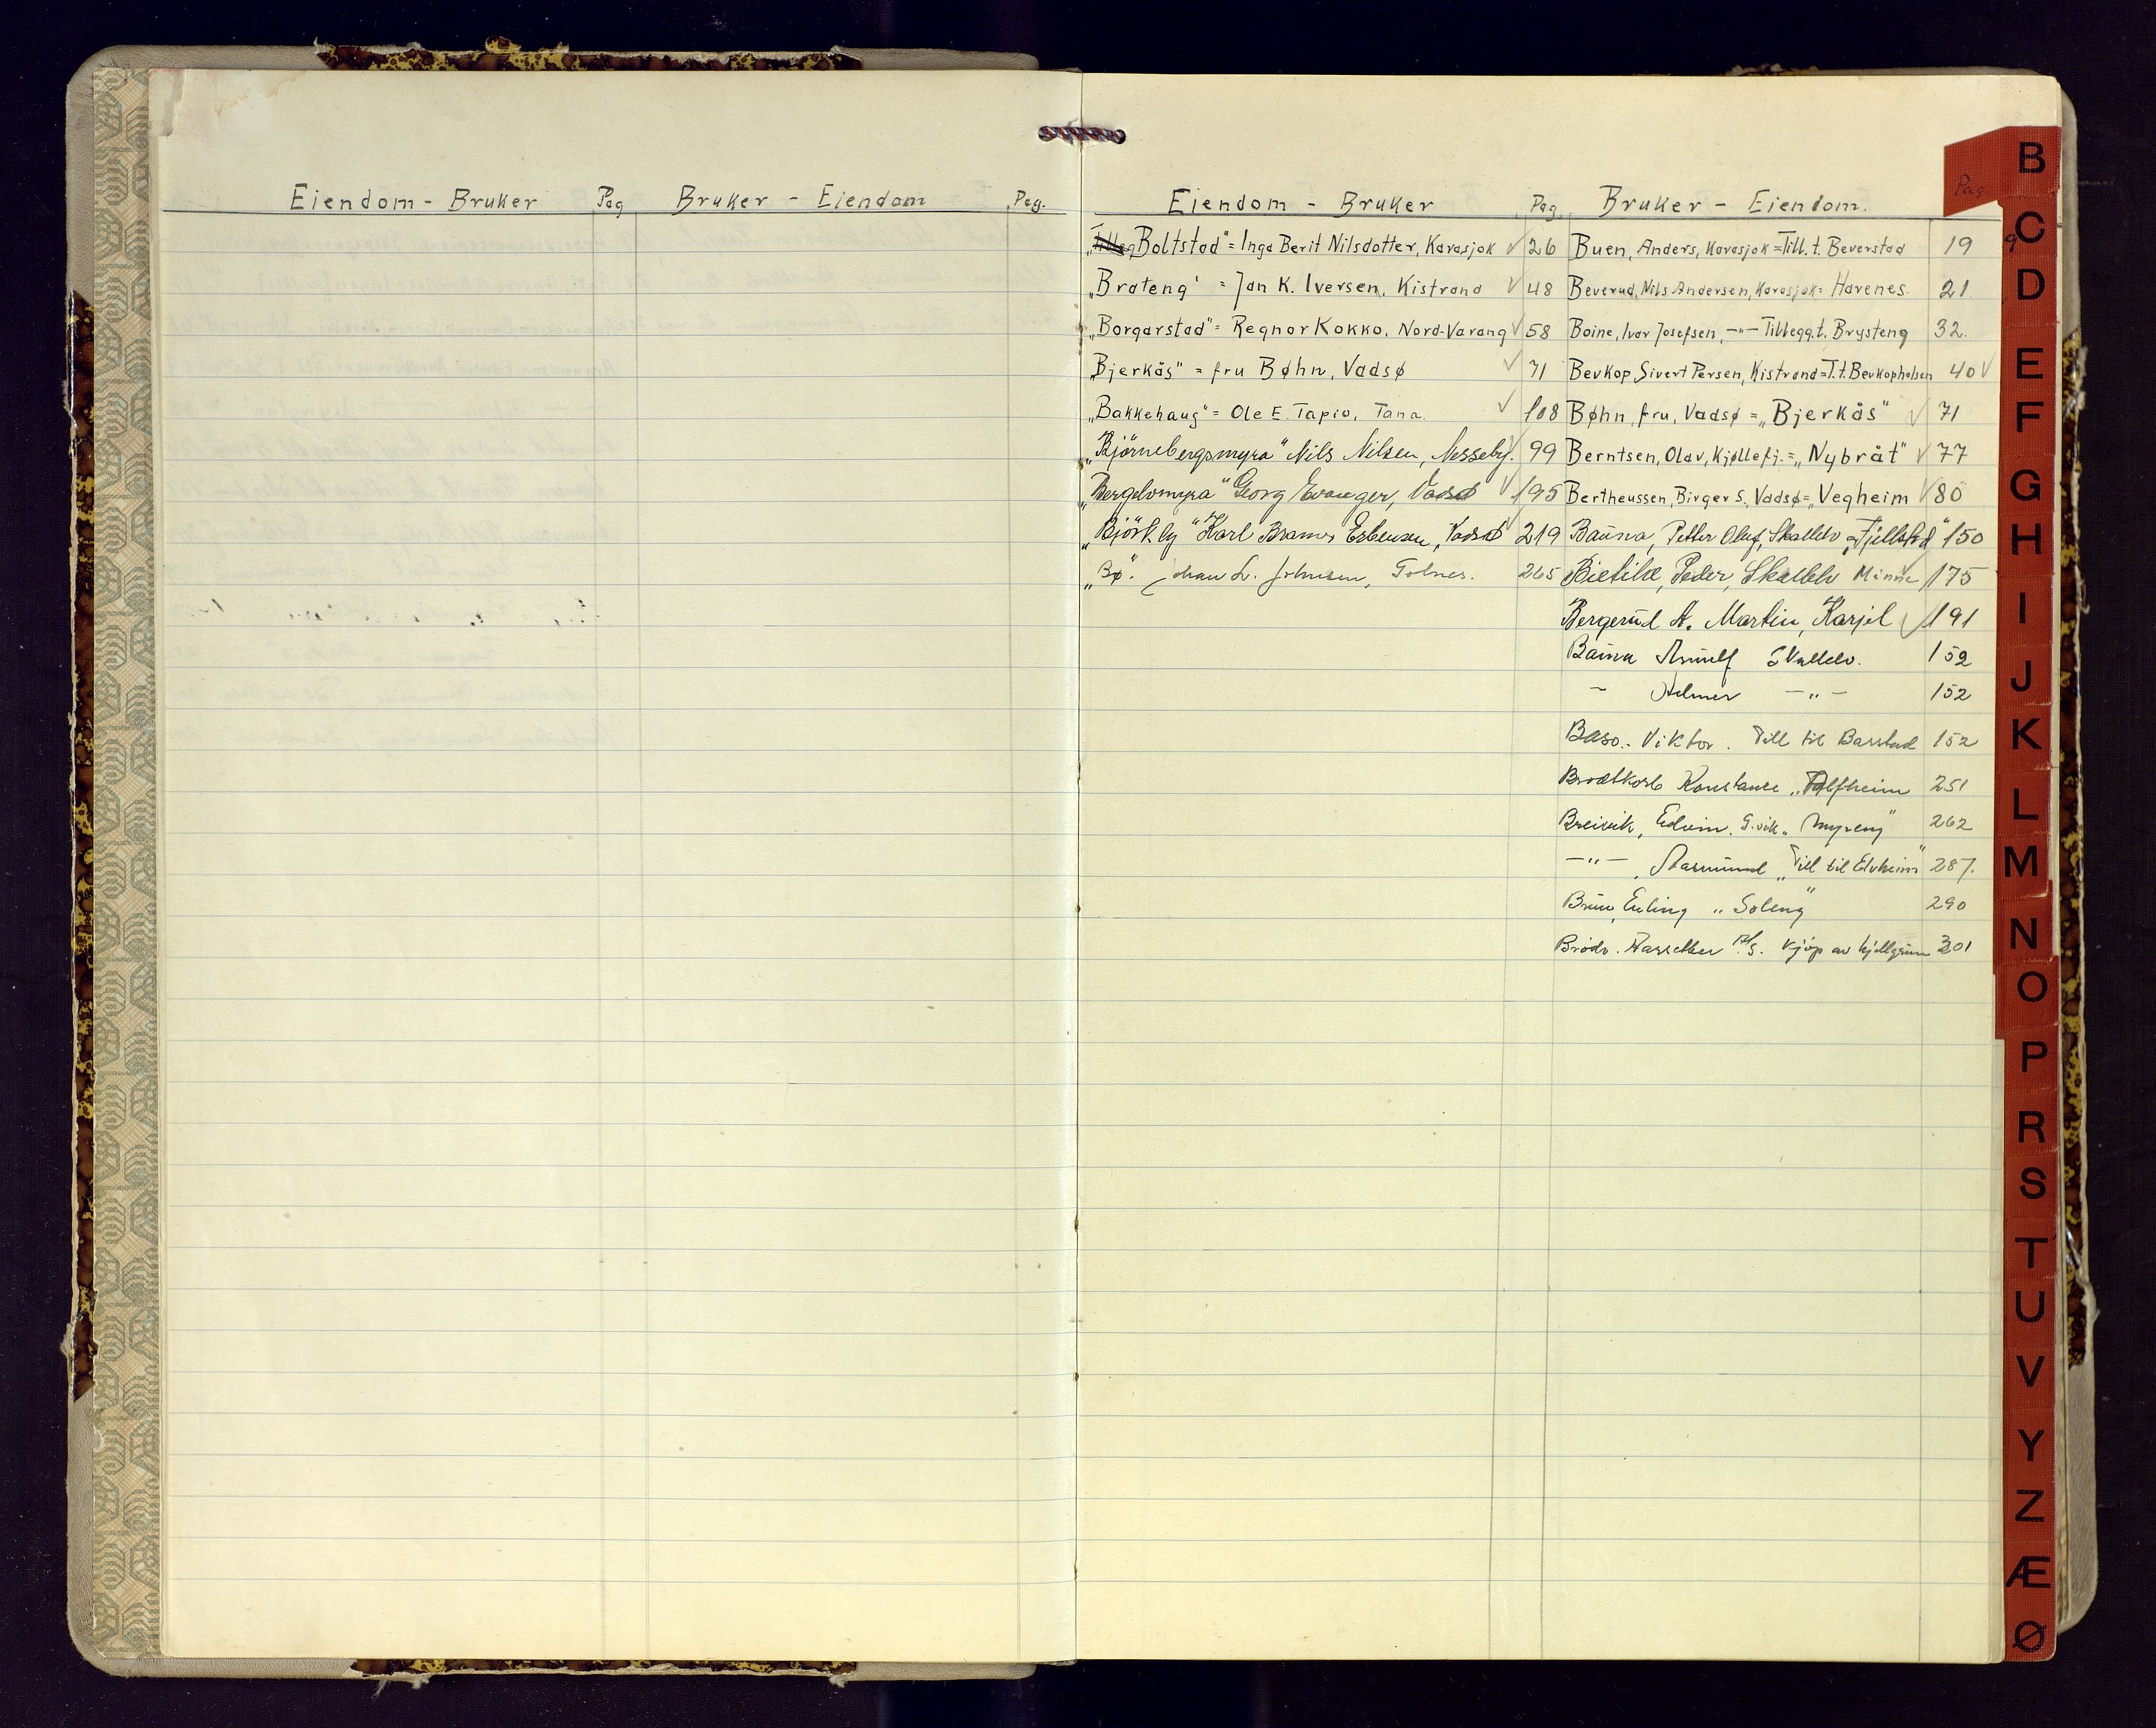 Eiendom - Bruker Pag Bruker - Eiendom Pag.
Eiendom - Bruker Pag. Bruker - Eiendom. Pag.
„Boltstad" = Inga Berit Nilsdotter, Karasjok √ 26
„Brateng" = Jan K. Iversen, Kistrand √ 48
„Borgarstad" = Regnor Kokko, Nord-Varang √ 58
„Bjerkås" = fru Bøhn, Vadsø √ 71
„Bakkehaug" = Ole E. Tapio, Tana. √ 108
„Björnebergsmyra" Nils Nilsen, Nesseby. 99
„Bergelvmyra" Georg Evanger, Vadsö √ 195
„Björkly" Karl Esbensen, Vadsö 219
„Bø". Johan L. Johnsen, 265
Buen, Anders, Karasjok = Till. t. Beverstad 19
Beverud, Nils Andersen, Karasjok = Havenes. 21
Boine, Ivar Josefsen, —"— Tillegg. t. Brysteng 32.
Bevkop, Sivert Persen, Kistrand = T. t. Bevkopholmen 40 √
Bøhn, fru, Vadsø = „Bjerkås" √ 71
Berntsen, Olav, Kjøllefj. = „Nybråt" √ 77
Bertheussen, Birger S., Vadsø = „Vegheim √ 80
Bauna, Petter Oluf, Skallelv = „Fjellstad" 150
Bietilæ, Peder, Skallelv Minne 175
Bergerud A. Martin, Karjel √ 191
Bauna Arnulf Skallelv. 152
" Helmer —"— 152
Baso. Viktor. Till til Basstad 152
Brodtkorb Konstance „Alfheim 251
Breivik, Edvin. G.vik „Myreng" 262
—"— , Aasmund „Till til Elvheim" 287.
Bruu, Erling „Soleng" 290
Brödr. A/S. Kjöp av 301
B
C
D
E
F
G
H
I
J
K
L
M
N
O
P
R
S
T
U
V
Y
Z
Æ
Ø